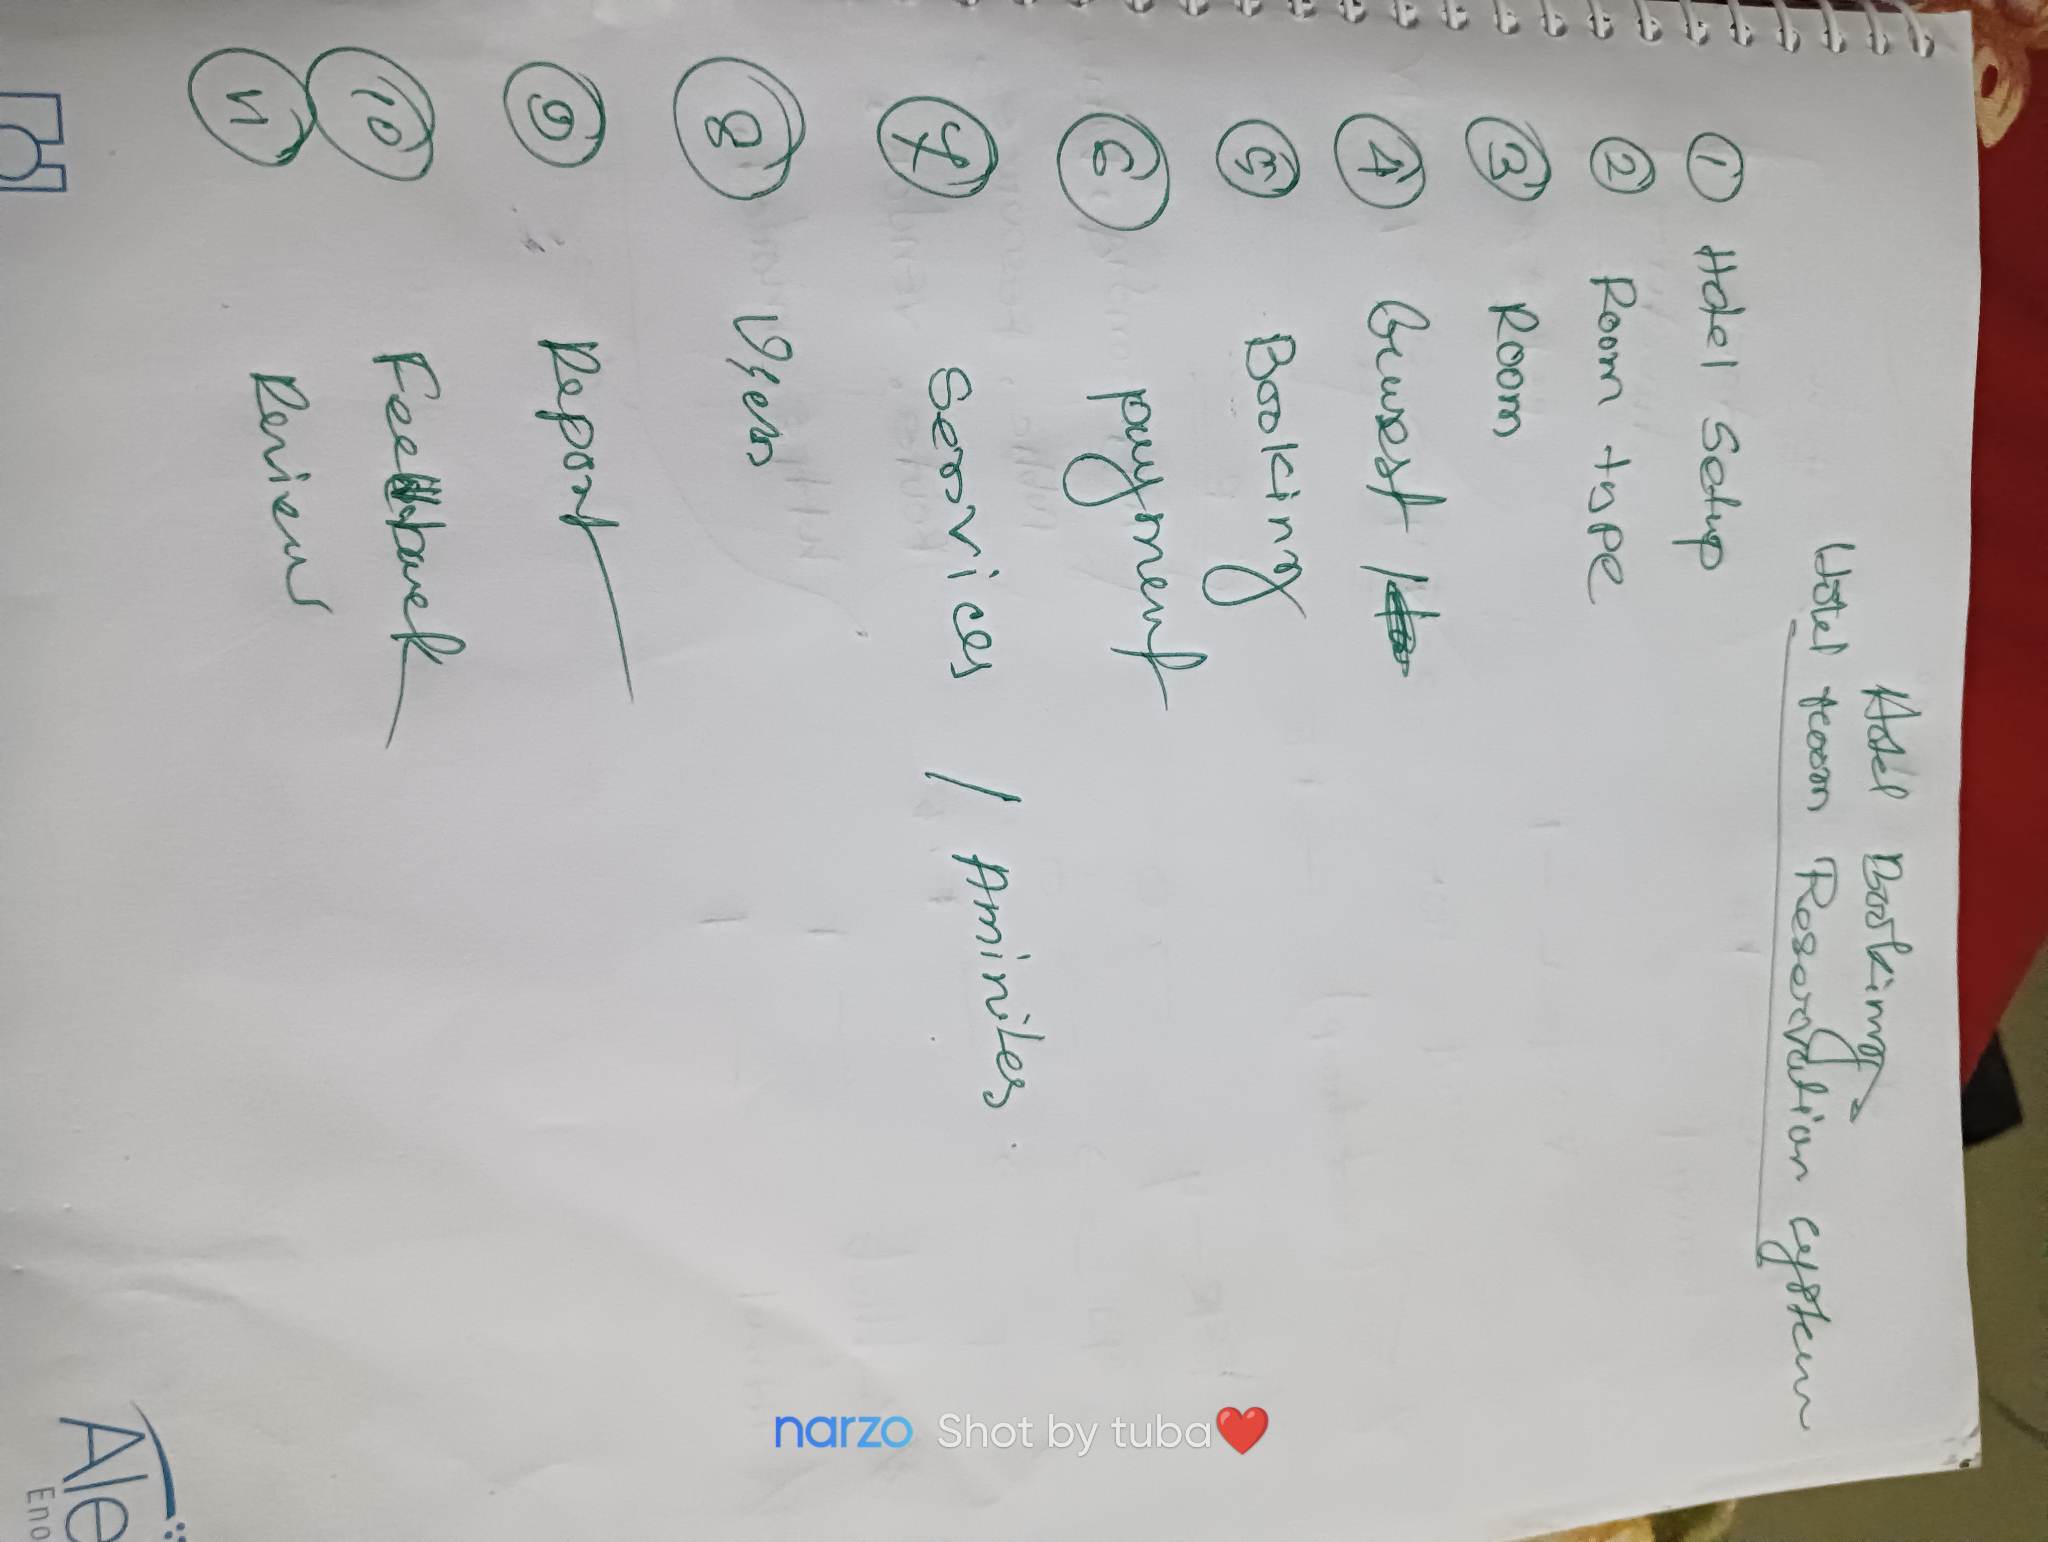 Hotel Booking
Hotel room Reservation cystem
1 Hotel Setup
2 Room type
3 Room
4 Guest
5 Booking
6 payment
7 Services / Aminites
8 Users
9 Report
10 Feedback
11 Review
Ale
Eno
narzo Shot by tuba❤️